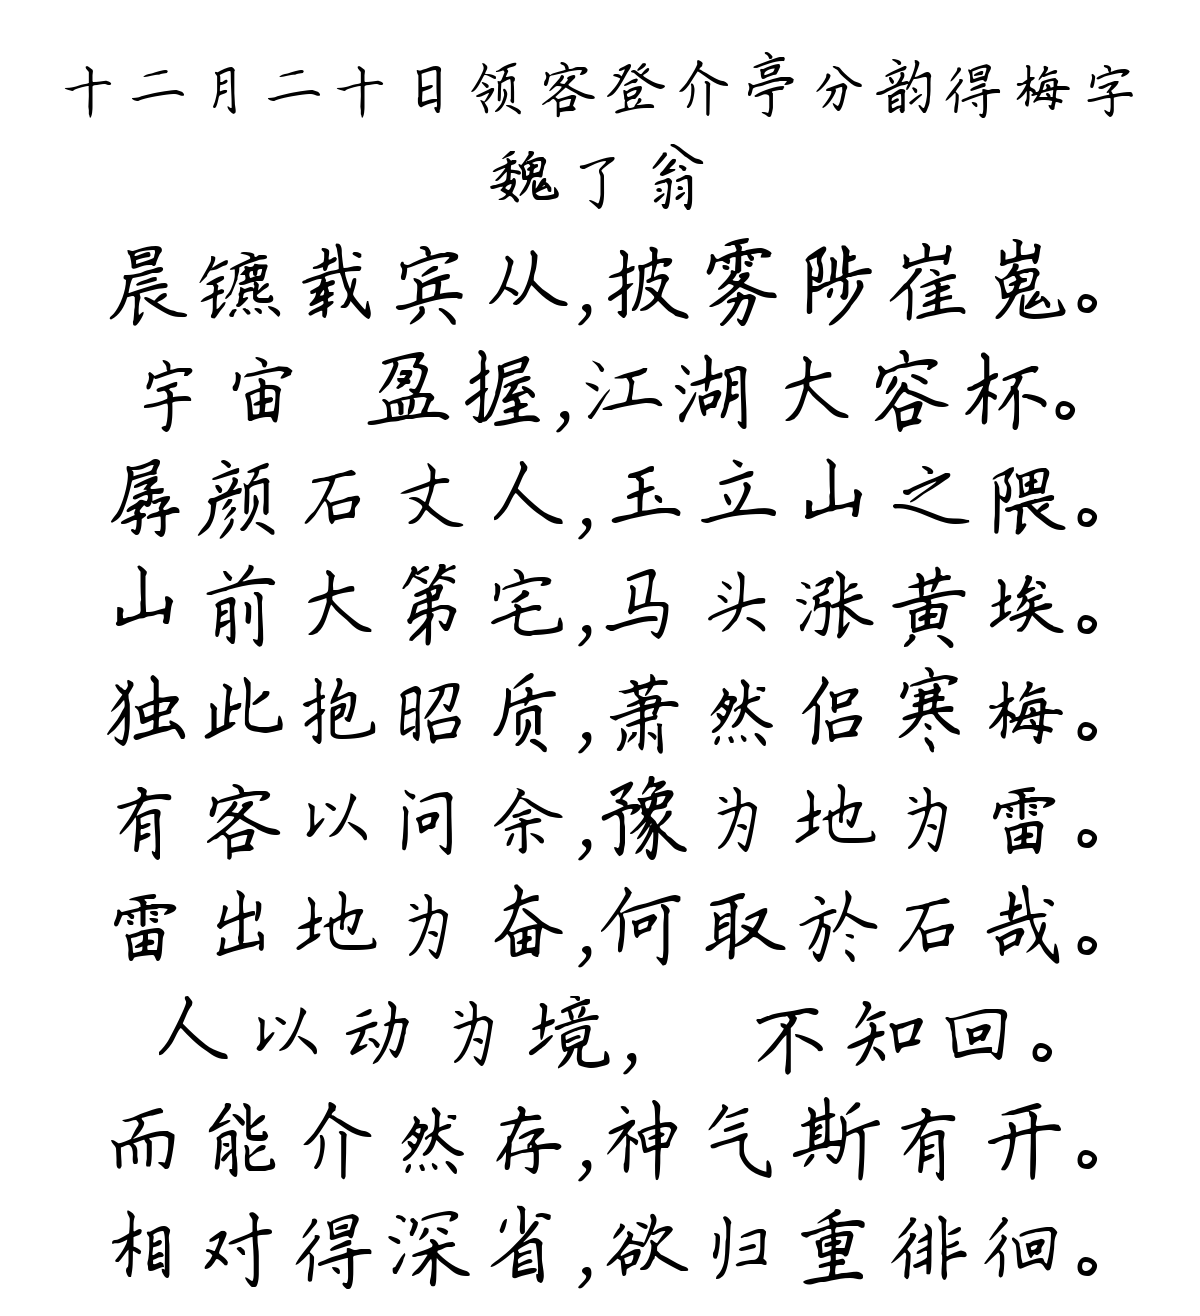 十二月二十日领客登介亭分韵得梅字
魏了翁
晨镳载宾从,披雾陟崔嵬。
宇宙 盈握,江湖大容杯。
孱颜石丈人,玉立山之隈。
山前大第宅,马头涨黄埃。
独此抱昭质,萧然侣寒梅。
有客以问余,豫为地为雷。
雷出地为奋,何取於石哉。
人以动为境, 不知回。
而能介然存,神气斯有开。
相对得深省,欲归重徘徊。